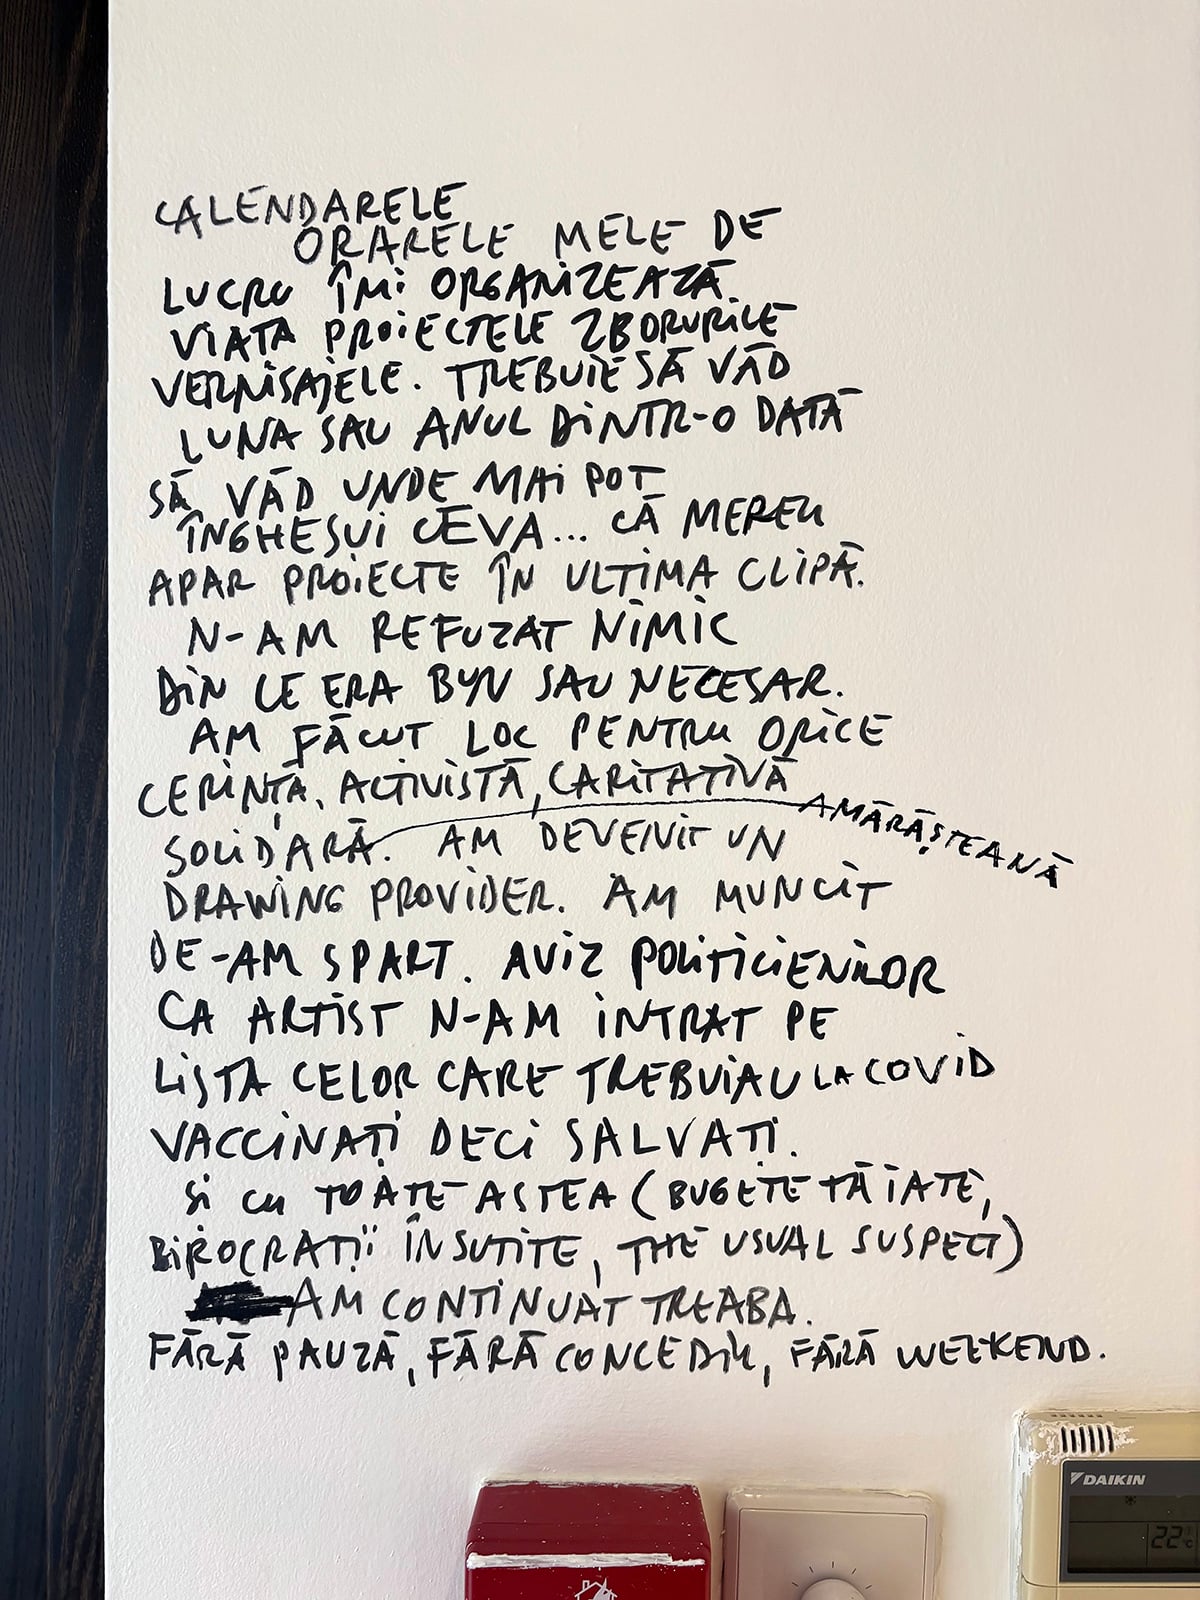 CALENDARELE
ORARELE MELE DE
LUCRU ÎMI ORGANIZEAZĂ
VIATA PROIECTELE ZBORURILE
VERNISAJELE. TREBUIE SĂ VĂD
LUNA SAU ANUL DINTR-O DATĂ
SĂ VĂD UNDE MAI POT
ÎNGHESUI CEVA... CĂ MEREU
APAR PROIECTE ÎN ULTIMA CLIPĂ.
N-AM REFUZAT NIMIC
DIN CE ERA BUN SAU NECESAR.
AM FĂCUT LOC PENTRU ORICE
CERINȚĂ, ACTIVISTĂ, CARITATIVĂ
AMĂRĂȘTEANĂ
SOLIDARĂ. AM DEVENIT UN
DRAWING PROVIDER. AM MUNCIT
DE-AM SPART. AVIZ POLITICIENILOR
CA ARTIST N-AM INTRAT PE
LISTA CELOR CARE TREBUIAU LA COVID
VACCINAȚI DECI SALVAȚI.
ȘI CU TOATE ASTEA (BUGETE TĂIATE,
BIROCRAȚII ÎNSUTITE, THE USUAL SUSPECT)
AM CONTINUAT TREABA.
FĂRĂ PAUZĂ, FĂRĂ CONCEDIU, FĂRĂ WEEKEND.
DAIKIN
22°C